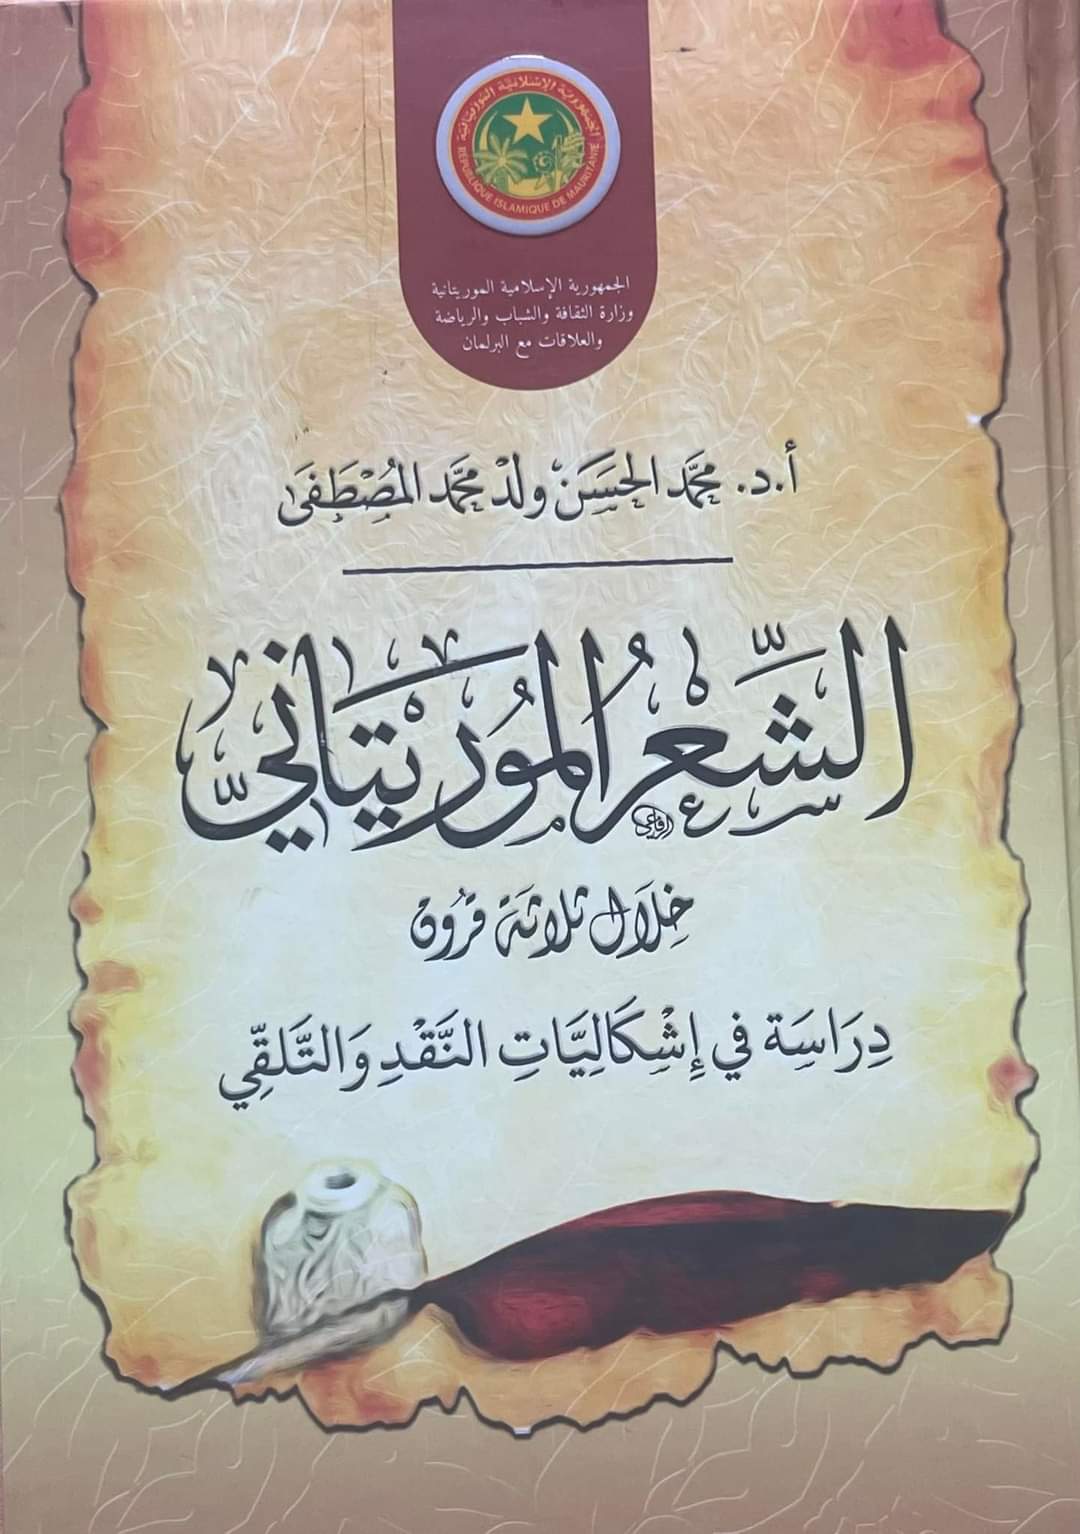 الجمهورية الإسلامية الموريتانية
REPUBLIQUE ISLAMIQUE DE MAURITANIE
الجمهورية الإسلامية الموريتانية
وزارة الثقافة والشباب والرياضة
والعلاقات مع البرلمان
أ.د. محمَّد الحَسَن ولدْ محمَّد المُصْطَفَى
الشِّعْرُ المُورِيتَانيّ
الرفاعي
خِلَال ثلَاثَة قرُون
دِرَاسَة في إِشْكَالِيَّاتِ النَّقْدِ وَالتَّلَقِّي